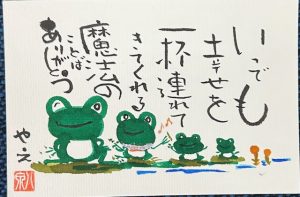 いつでも
幸せを
一杯連れて
きてくれる
魔法の
ことば
ありがとう
やえ